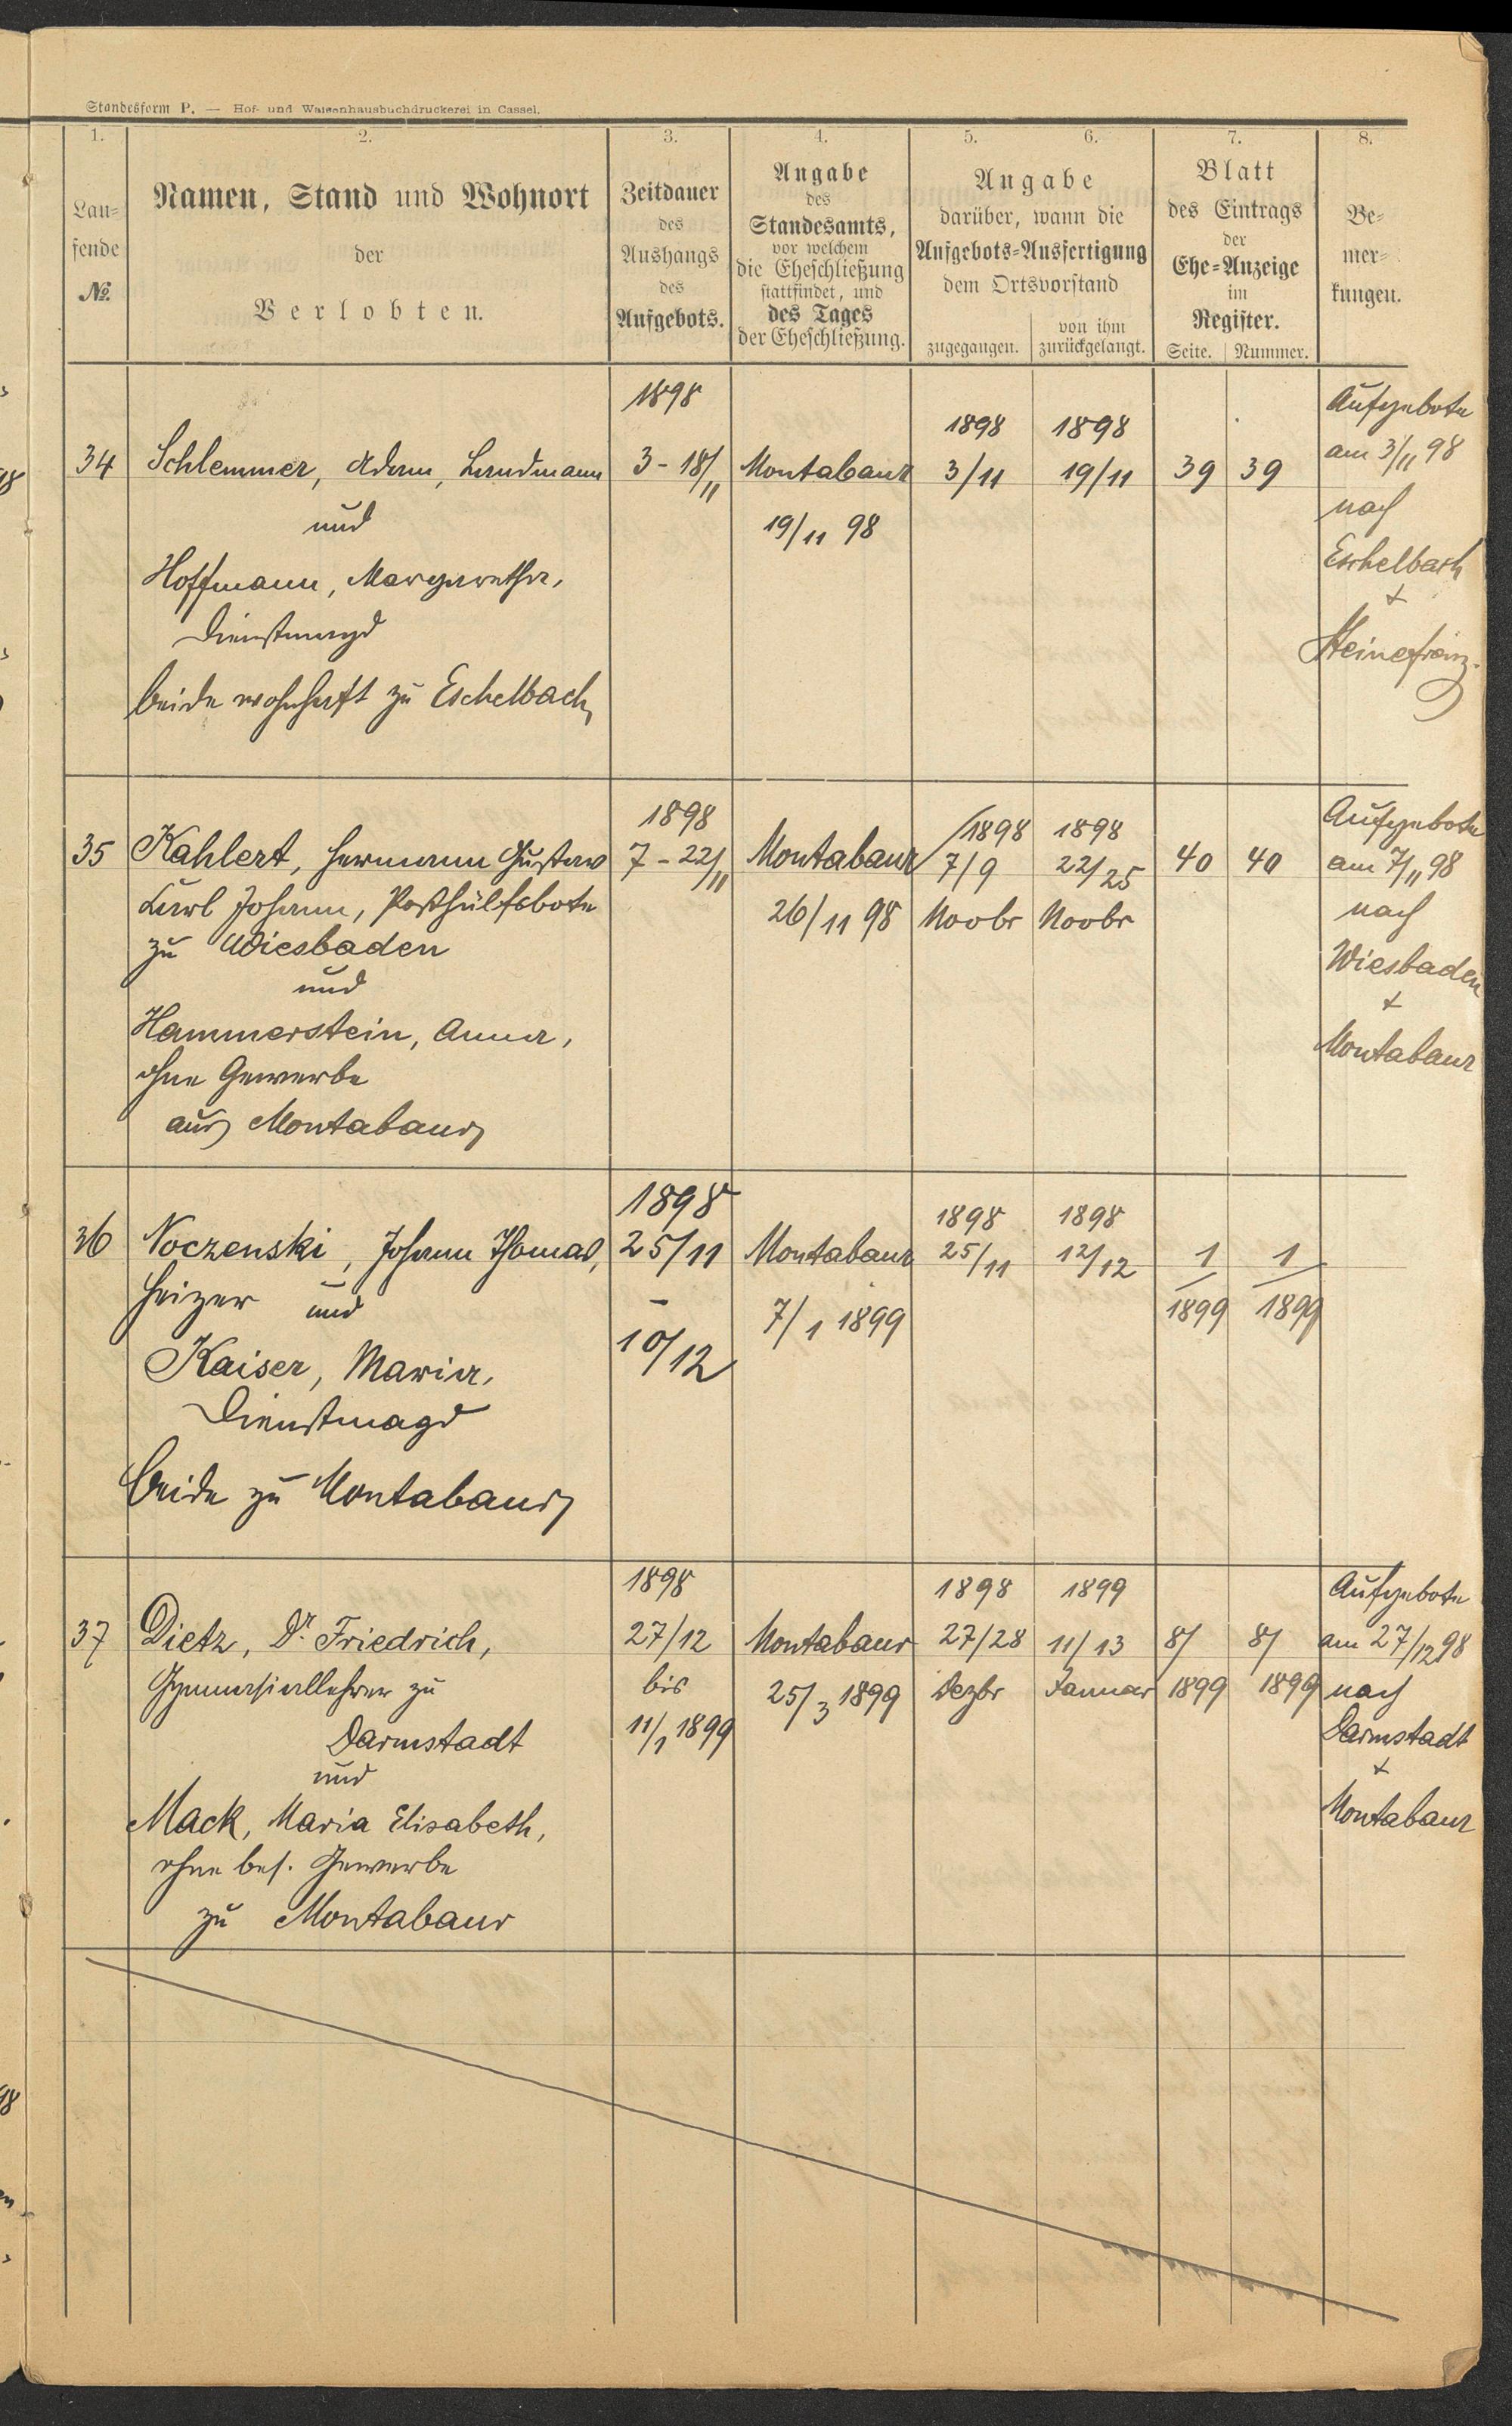 Standesform P. — Hof- und Waisenhausbuchdruckerei in Cassel.
1. 2. 3. 4. 5. 6. 7. 8.
Lau-
fende
№
Namen, Stand und Wohnort
der
Verlobten.
Zeitdauer
des
Aushangs
des
Aufgebots.
Angabe
des
Standesamts,
vor welchem
die Eheschließung
stattfindet, und
des Tages
der Eheschließung.
Angabe
darüber, wann die
Aufgebots-Ausfertigung
dem Ortsvorstand
zugegangen.
von ihm
zurückgelangt.
Blatt
des Eintrags
der
Ehe-Anzeige
im
Register.
Seite. Nummer.
Be-
mer-
kungen.
34
Schlemmer, Adam, Landmann
und
Hoffmann, Margaretha,
Dienstmagd
beide wohnhaft zu Eschelbach
1898
3-18/11
Montabaur
19/11 98
1898
3/11
1898
19/11
39 39
Aufgebote
am 3/11 98
nach
Eschelbach
+
Steinefrenz.
35
Kahlert, Hermann Gustav
Karl Johann, Posthülfsbote
zu Wiesbaden
und
Hammerstein, Anna,
ohne Gewerbe
aus Montabaur
1898
7-22/11
Montabaur
26/11 98
1898
7/9
Novbr
1898
22/25
Novbr
40 40
Aufgebote
am 7/11 98
nach
Wiesbaden
+
Montabaur
36
Noczenski, Johann Thomas,
Heizer und
Kaiser, Maria,
Dienstmagd
beide zu Montabaur
1898
25/11
–
10/12
Montabaur
7/1 1899
1898
25/11
1898
12/12
1 1
1899 1899
37
Dietz, Dr. Friedrich,
Gymnasiallehrer zu
Darmstadt
und
Mack, Maria Elisabeth,
ohne bes. Gewerbe
zu Montabaur
1898
27/12
bis
11/1 1899
Montabaur
25/3 1899
1898
27/28
Dezbr
1899
11/13
Januar
8/ 8/
1899 1899
Aufgebote
am 27/12 98
nach
Darmstadt
+
Montabaur